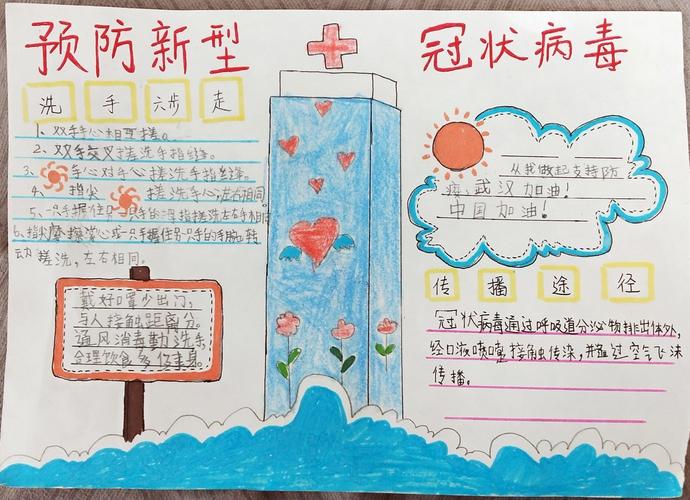 预防新型
冠状病毒
洗手六步走
1、双手心相互搓。
2、双手交叉搓洗手指缝。
3、手心对手心搓洗手指缝。
4、指尖搓洗手心,左右相同
5、一只手握住另一只手的拇指搓洗左右手相同
6、指尖摩擦掌心或一只手握住另只手的手腕转
动搓洗,左右相同。
戴好口罩少出门,
与人接触距离分。
通风消毒勤洗手,
合理饮食多休息。
从我做起支持防
疫,武汉加油!
中国加油!
传播途径
冠状病毒通过呼吸道分泌物排出体外,
经口液喷嚏接触传染,并通过空气飞沫
传播。